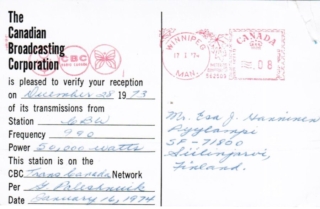 The
Canadian
Broadcasting
Corporation
CBC
is pleased to verify your reception
on December 28 1973
of its transmissions from
Station CBW
Frequency 990
Power 50,000 watts
This station is on the
CBC Trans Canada Network
Per
Date January 16, 1974
WINNIPEG
MAN.
CANADA
.08
Mr. Esa J. Hanninen
Pyylampi
SF - 71860
Siilinjarvi,
Finland.